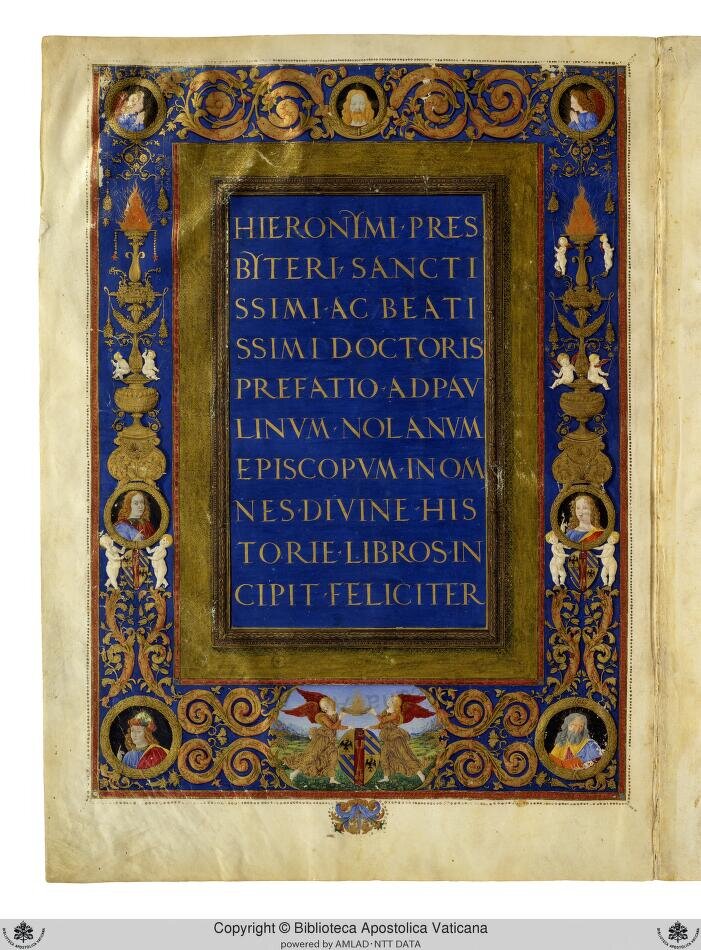 HIERONYMI·PRES
BYTERI·SANCTI
SSIMI·AC BEATI
SSIMI DOCTORIS
PREFATIO·AD PAV
LINVM·NOLANVM
EPISCOPVM·IN OM
NES·DIVINE·HIS
TORIE·LIBROS·IN
CIPIT·FELICITER
Copyright © Biblioteca Apostolica Vaticana
powered by AMLAD·NTT DATA